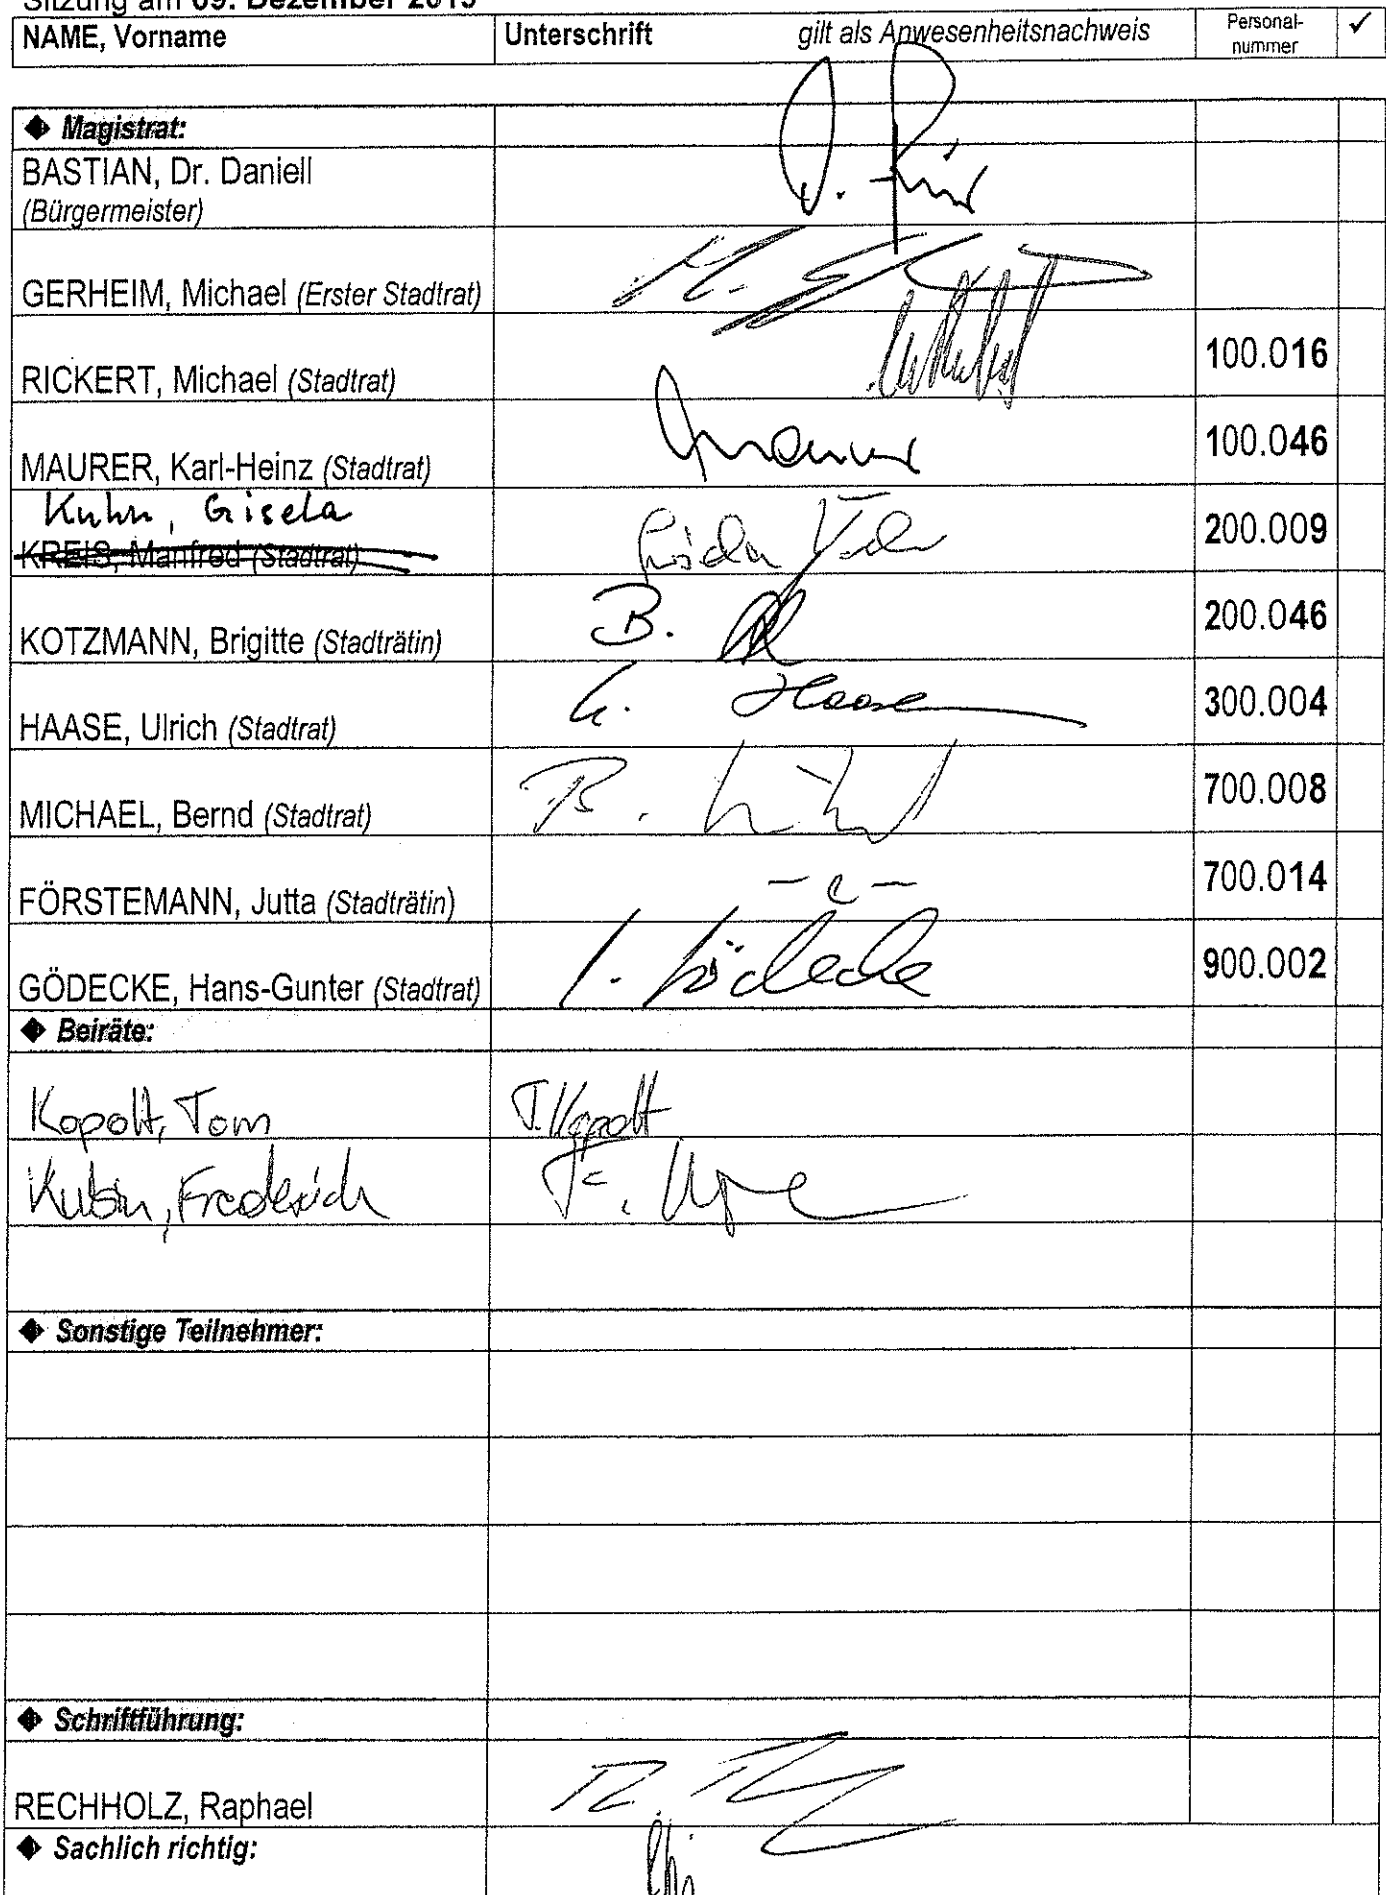 Sitzung am 09. Dezember 2019
NAME, Vorname Unterschrift gilt als Anwesenheitsnachweis Personal-nummer ✓
◆ Magistrat:
BASTIAN, Dr. Daniell
(Bürgermeister)
GERHEIM, Michael (Erster Stadtrat)
RICKERT, Michael (Stadtrat) 100.016
MAURER, Karl-Heinz (Stadtrat) Maurer 100.046
Kuhn, Gisela
KREIS, Manfred (Stadtrat) Gisela 200.009
KOTZMANN, Brigitte (Stadträtin) B. 200.046
HAASE, Ulrich (Stadtrat) U. Haase 300.004
MICHAEL, Bernd (Stadtrat) B. 700.008
FÖRSTEMANN, Jutta (Stadträtin) - e - 700.014
GÖDECKE, Hans-Gunter (Stadtrat) Gödecke 900.002
◆ Beiräte:
Kopolt, Tom T. Kopolt
Kubin, Frederich F.
◆ Sonstige Teilnehmer:
◆ Schriftführung:
RECHHOLZ, Raphael R.
◆ Sachlich richtig: